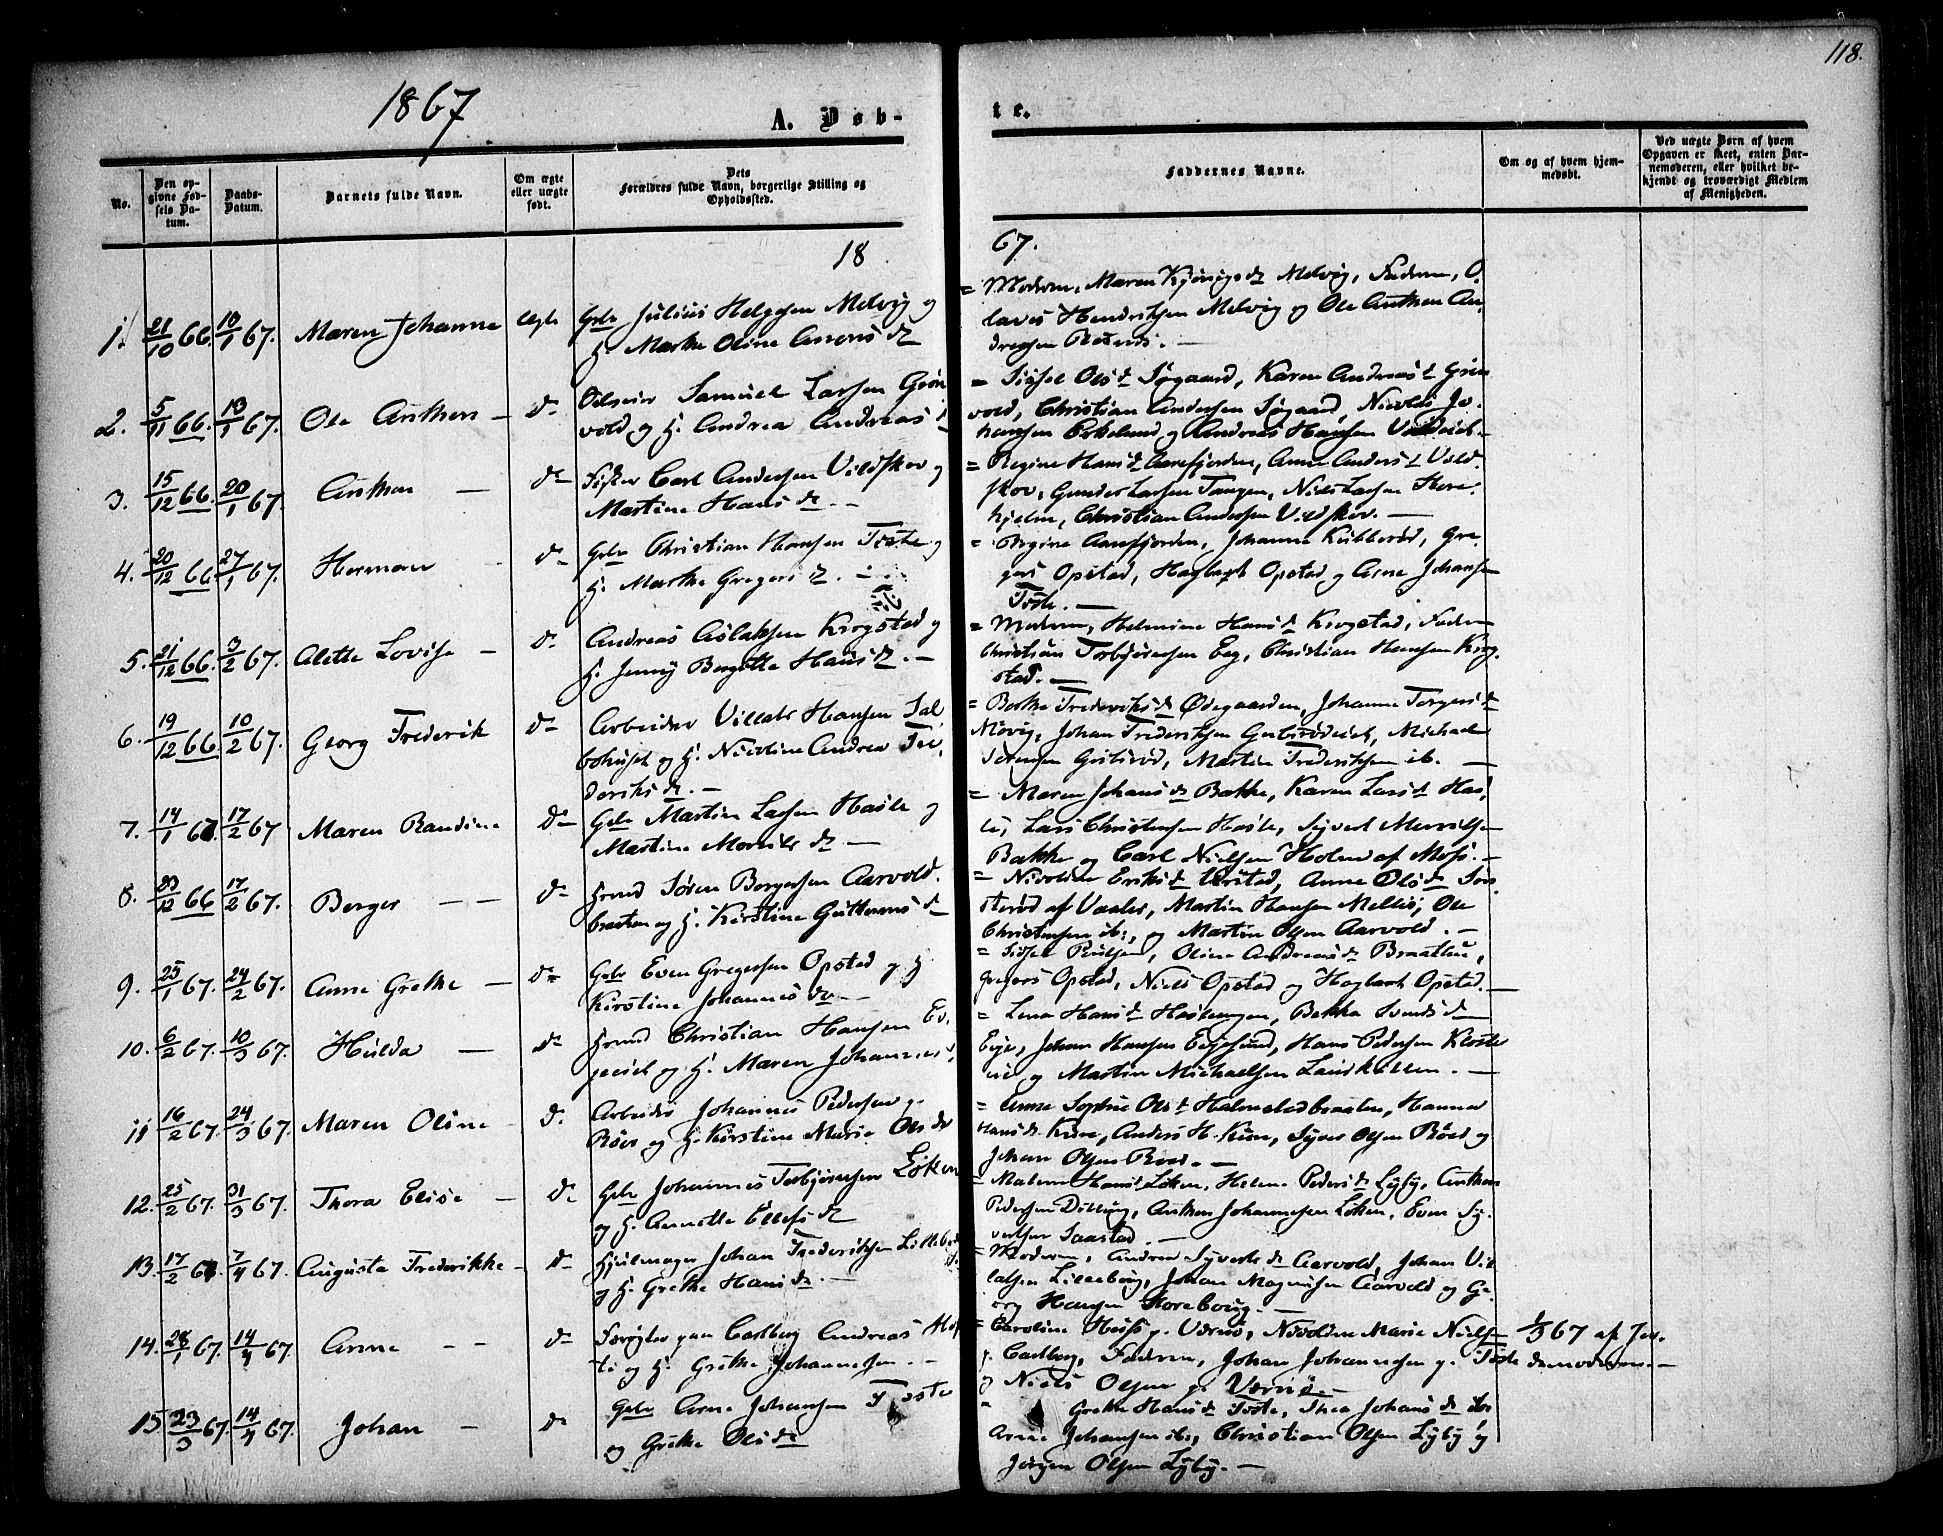 118.
1867.
A. Døb-
te.
No.
Den op-
givne Fød-
sels Da-
tum.
Daabs-
Datum.
Barnets fulde Navn.
Om ægte
eller uægte
født.
Dets
Forældres fulde Navn, borgerlige Stilling og
Opholdssted.
Faddernes Navne.
Om og af hvem hjem-
medøbt.
Ved uægte Børn af hvem
Opgaven er skeet, enten Bar-
nemoderen, eller hvilket be-
kjendt og troværdigt Medlem
af Menigheden.
18
67.
1. 21/10 66. 13/1 67. Maren Johanne Ægte Gbr Julius Helgesen Melvig og
H. Marthe Oline
= Moderen, Maren Melvig, Faderen, O
laves Hendriksen Melvig og Ole Anthon An
dreasen
2. 5/11 66. 13/1 67. Ole Anthon – do Samuel Larsen Grøn
vold og H. Andrea Andreasd
= Sissel Olsd Søgaard, Karen Andreasd Grøn
vold, Christian Andersen Søgaard, Nicolai Jo-
hansen Eskelund og Andreas Hansen
3. 15/12 66. 20/1 67. Anthon – do Fisker Carl Andersen Vildskov og
Martine Hansdr. –
= Regine Hansd Aarefjorden, Anne Andersd Vild
skov, Gunder Larsen Tangen, Niels Larsen Kore
hjelm, Christian Andersen Vildskov. –
4. 20/12 66. 27/1 67. Herman do Gbr Christian Hansen Toste og
H. Marthe Gregersd.
= Regine Aarefjorden, Johanne Kubberød, Gre
gers Opstad, Hagbart Opstad og Arne Johansen
Toste. –
5. 21/12 66. 3/2 67. Alette Lovise – do Andreas Aslaksen Krogstad og
H. Jenny Bergitte Hansd. –
= Moderen, Helmine Hansd Krogstad, Faderen
Christian Torbjørnsen Eeg, Christian Hansen Krog
stad. –
6. 19/12 66. 10/2 67. Georg Frederik do Arbeider Villats Hansen Sal
tbohuset og H. Nicoline Andrea Fre
deriksdr. –
= Berthe Frederiksd Ødegaarden, Johanne Torgersd
Møvig, Johan Frederiksen, Michael
Sørensen, Martin Frederiksen ib. –
7. 14/1 67. 17/2 67 Maren Randine do Gbr Martin Larsen Hasle og
Martine dr –
= Maren Johansd Bakke, Karen Larsd Has
le, Lars Christensen Hasle, Syvert
Bakke og Carl Nielsen Holen af Moss. –
8. 12 66 17/2 67. Berger – – do Hmd Søren Borgersen Aarvold
braaten og H. Kirstine Guttormsd
= Nicoline Eriksd, Anne Olsd
af Vaaler, Martin Hansen Mellis, Ole
Christensen ib:, og Martin Olsen Aarvold. –
9. 25/1 67. 24/2 67. Anne Grethe – do Gbr Even Gregersen Opstad og H
Kirstine Johannesd –
= Sidsel Poulsen, Oline Andreasd Braathen,
Gregers Opstad, Niels Opstad og Hagbart Opstad. –
10. 6/2 67. 10/3 67. Hulda – do Hmd Christian Hansen Ev
jeeiet og H. Maren Johannesd
= Lena Hansd, Bertha Svendsd
Evje, Johan Hansen, Hans Pedersen Kloste
rit og Martin Michaelsen. –
11 16/2 67. 24/3 67. Maren Oline do. Arbeider Johannes Pedersen p.
Røer og H. Kirstine Marie Olsdr
= Anne Sophie Olsd Halmstadbraaten, Hanna
Hansd Kure, Anders H. Kure, Syver Olsen Røed og
Johan Olsen Roed. –
12. 25/2 67. 31/3 67. Thora Elise – do. Gbr Johannes Torbjørnsen Løken
og H. Annette Ellefsd
= Malene Hansd Løken, Helene Pedersd Lyby, Anthon
Pedersen Dilling, Anthon Johannesen Løken, Even Sy
vertsen Saastad. –
13. 17/2 67 7/4 67. Augusta Frederikke – do Hjulmager Johan Frederiksen Lilleberg
og H. Grethe Hansd. –
= Moderen, Andrea Syvertsd Aarvold, Johan Vil
latsen Lilleberg, Johan Magnusen Aarvold og Ge
org Hansen Korebourg. –
14. 28/1 67. 14/4 67. Anne – – do Forvogter paa Carlberg Andreas
og H. Grethe Johannesen. –
= Caroline p. Værnø, Nicoline Marie Nielsen
p. Carlberg, Faderen, Johan Johannesen p. Toste
og Niels Olsen p. Værnø. –
3 67 af Jor-
demoderen. –
15. 23/3 67. 14/4 67. Johan – do Gbr Arne Johansen Toste
og Grethe Olsd
= Grethe Hansd Toste, Thea Johansd ib:
Arne Johansen ib:, Christian Olsen Lyby og
Jørgen Olsen Lyby. –